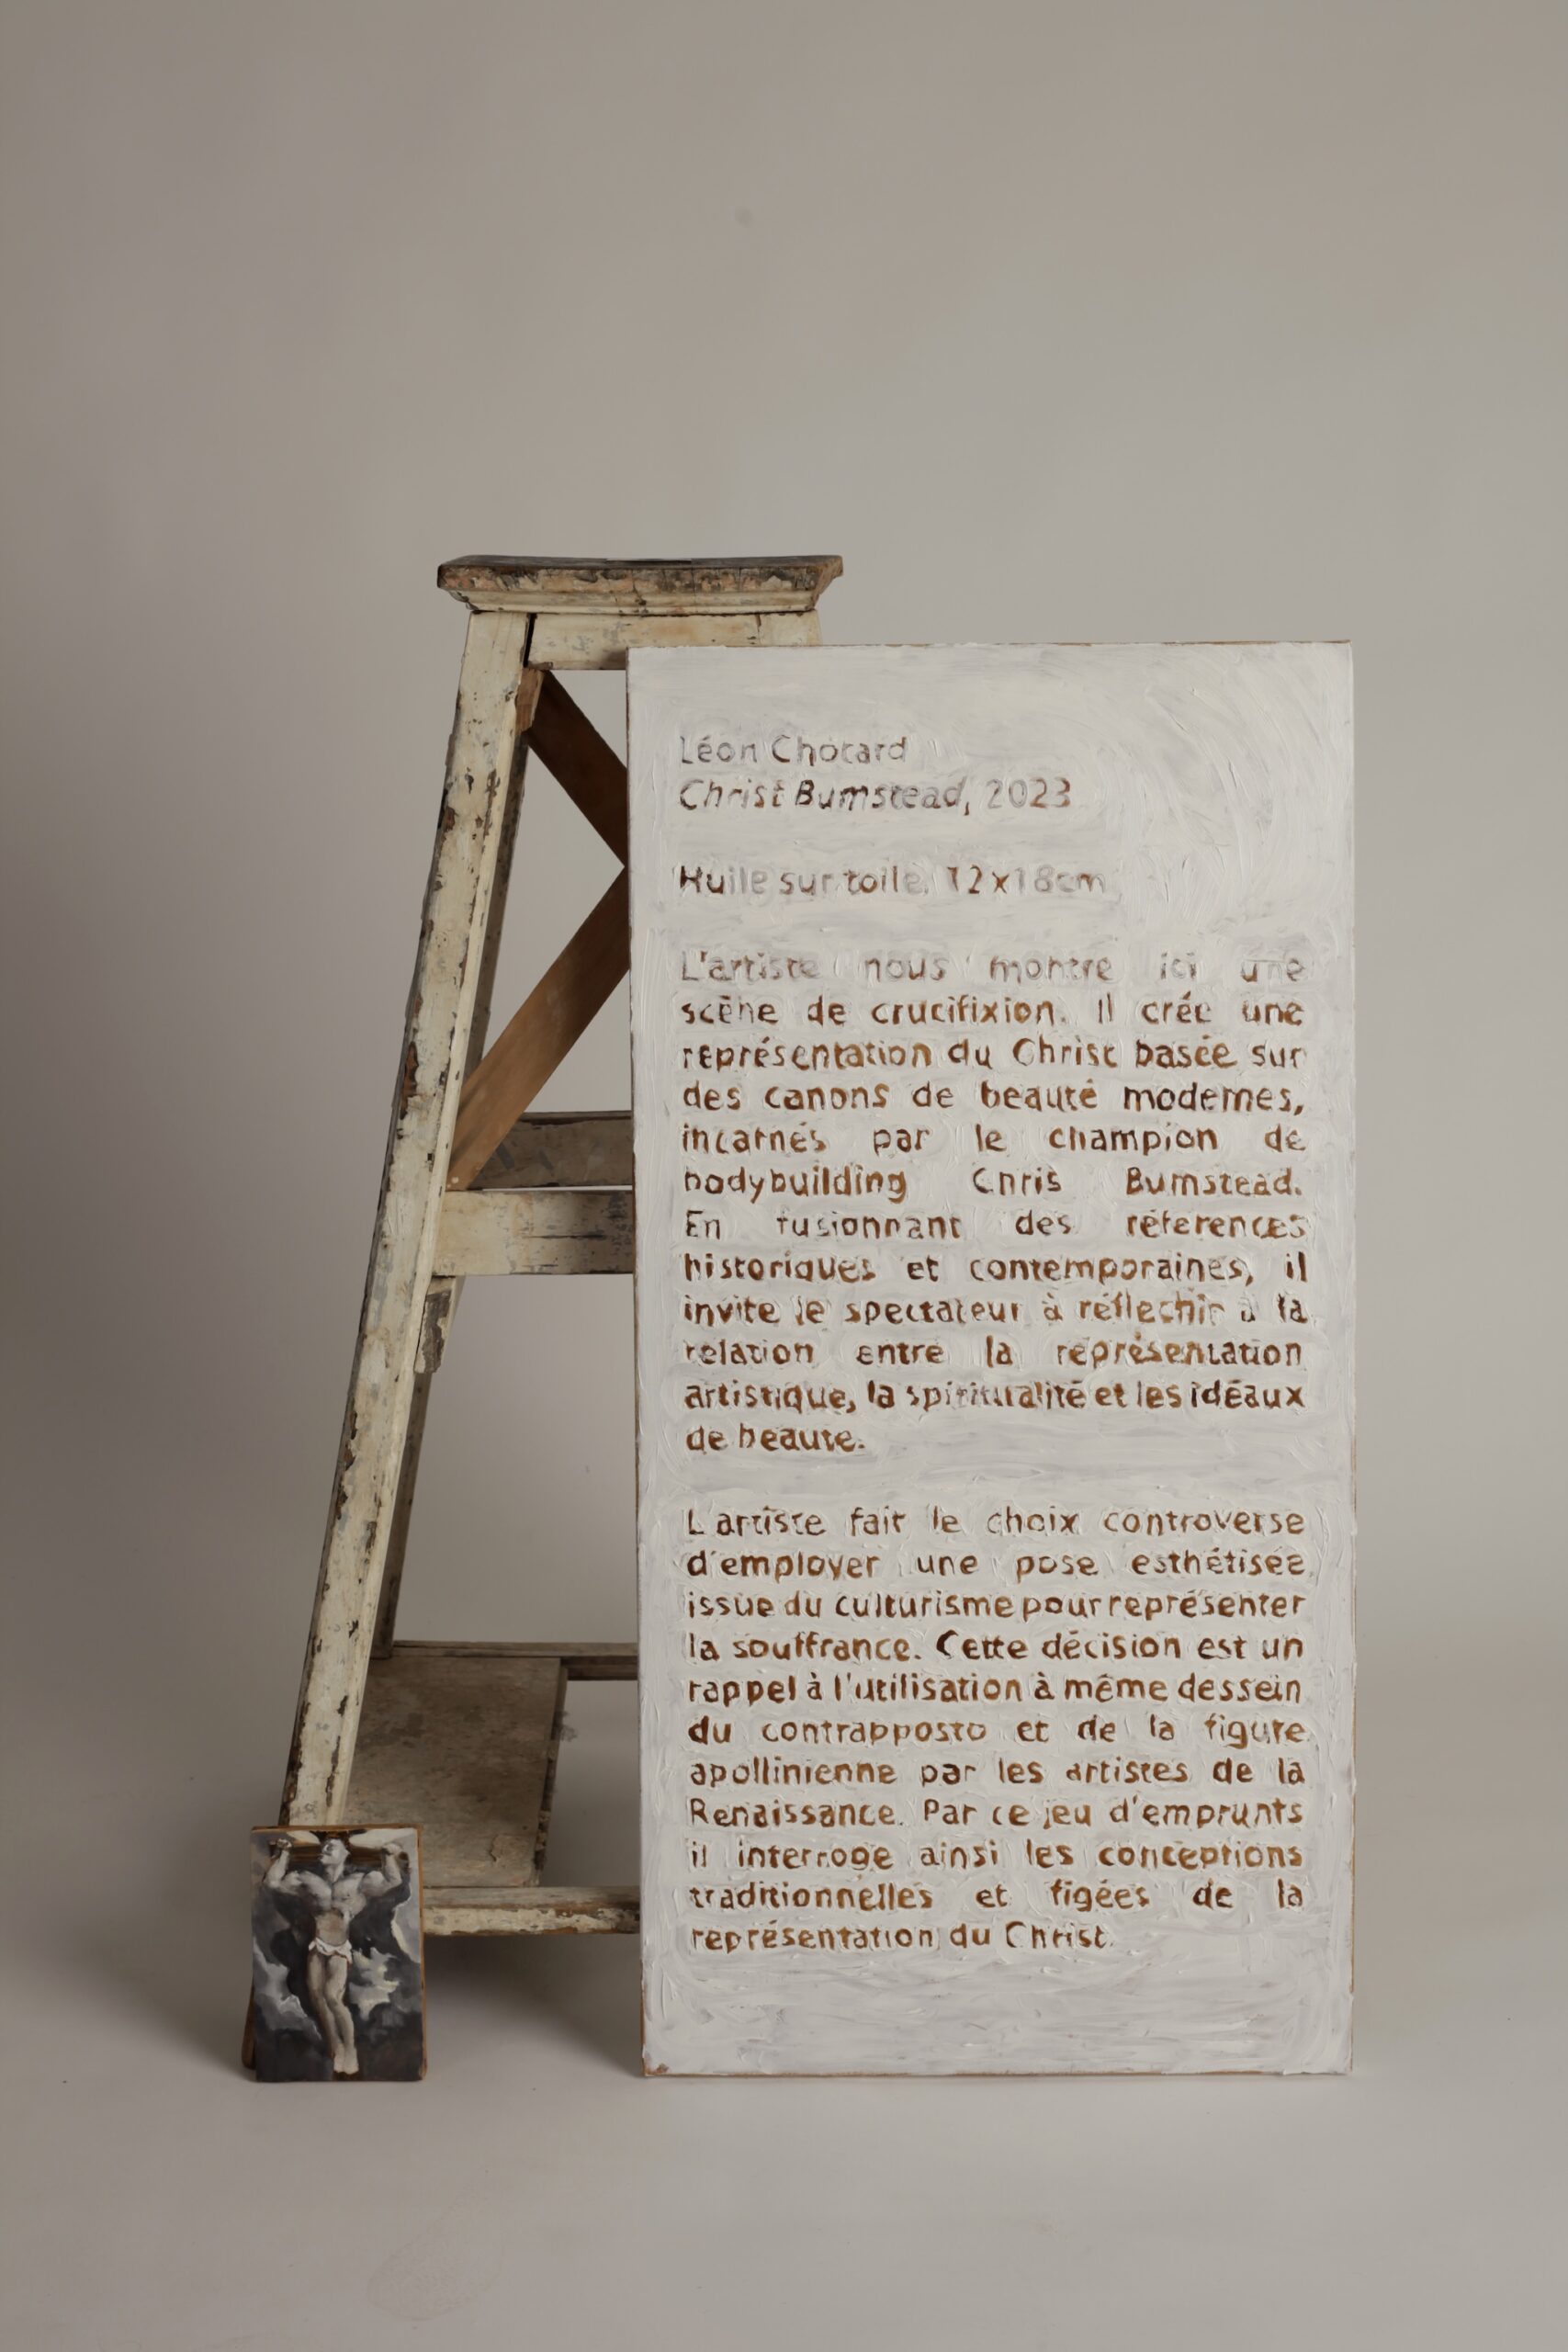 Léon Chotard
Christ Bumstead, 2023
Huile sur toile, 12x18cm
L'artiste nous montre ici une
scène de crucifixion. Il crée une
représentation du Christ basée sur
des canons de beauté modernes,
incarnés par le champion de
bodybuilding Chris Bumstead.
En fusionnant des références
historiques et contemporaines, il
invite le spectateur à réflechir à la
relation entre la représentation
artistique, la spiritualité et les idéaux
de beaute.
L'artiste fait le choix controverse
d'employer une pose esthétisée
issue du culturisme pour représenter
la souffrance. Cette décision est un
rappel à l'utilisation à même dessein
du contrapposto et de la figure
apollinienne par les artistes de la
Renaissance. Par ce jeu d'emprunts
il interroge ainsi les conceptions
traditionnelles et figées de la
représentation du Christ.